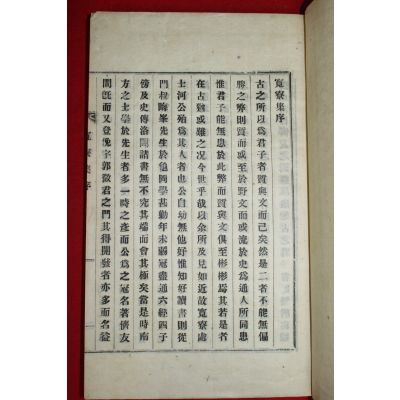 寬寮集序
古之所以爲君子者質與文而已矣然是二者不能無偏
勝之弊則質而或至於野文而或流於史爲通人所同患
惟君子能無患於此弊而質與文俱至彬彬焉其若是者
在古難或雖之况今世乎哉以余所及見如近故寬寮處
士河公殆爲其人者也公自幼無他好惟知好讀書則從
門叔晦峯先生於他園學甚勤年未弱冠盡通六經四子
傍及史傳洛閩諸書無不究其端而會其極矣當是時南
方之士學於先生者多一時之彥而公爲之冠名著儕友
間旣而又登俛宇郭徵君之門其得開發者亦多而名益
寬寮集序